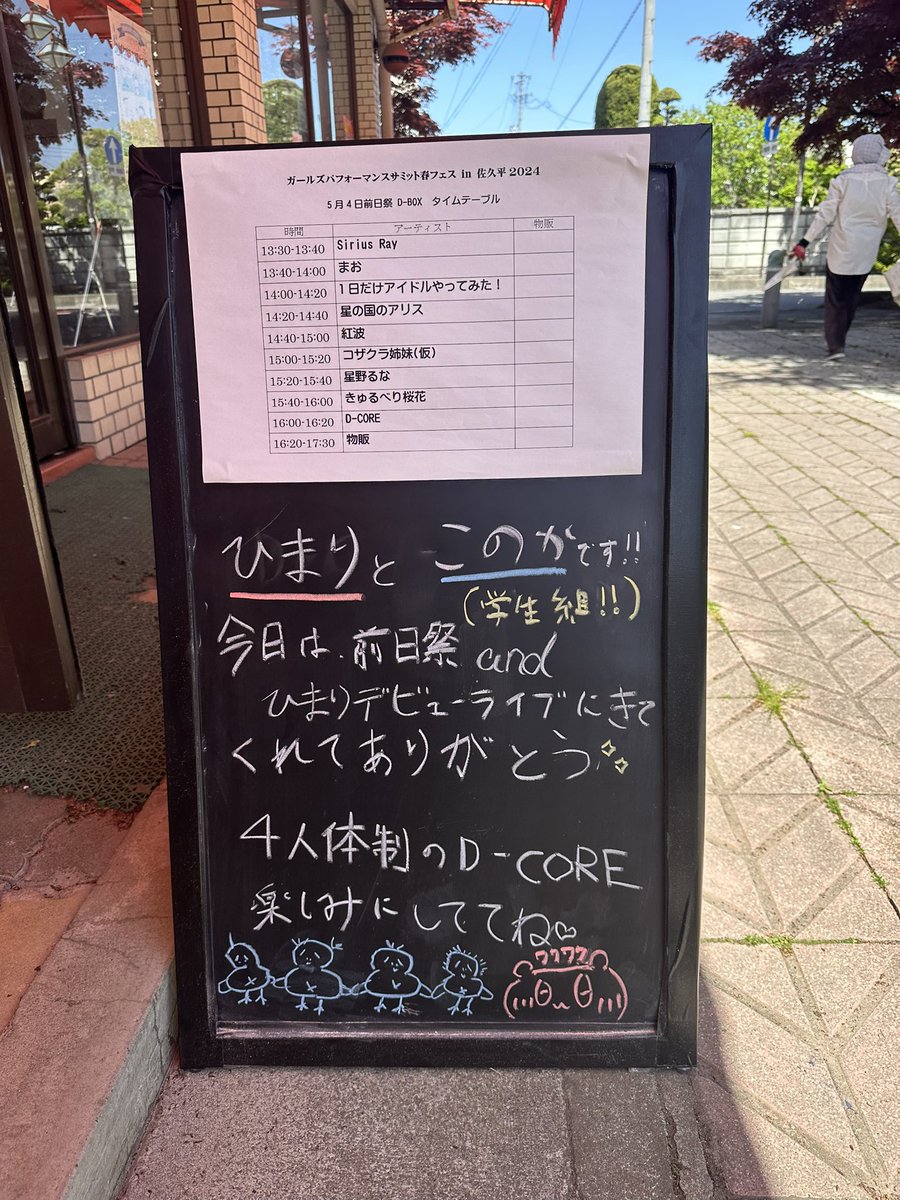 ガールズパフォーマンスサミット春フェス in 佐久平 2024
5月4日前日祭 D-BOX タイムテーブル
時間 アーティスト 物販
13:30-13:40 Sirius Ray
13:40-14:00 まお
14:00-14:20 1日だけアイドルやってみた!
14:20-14:40 星の国のアリス
14:40-15:00 紅波
15:00-15:20 コザクラ姉妹(仮)
15:20-15:40 星野るな
15:40-16:00 きゅるべり桜花
16:00-16:20 D-CORE
16:20-17:30 物販
ひまりと このかです!!
(学生組!!)
今日は、前日祭 and
ひまりデビューライブにきて
くれてありがとう
4人体制のD-CORE
楽しみにしててね♡